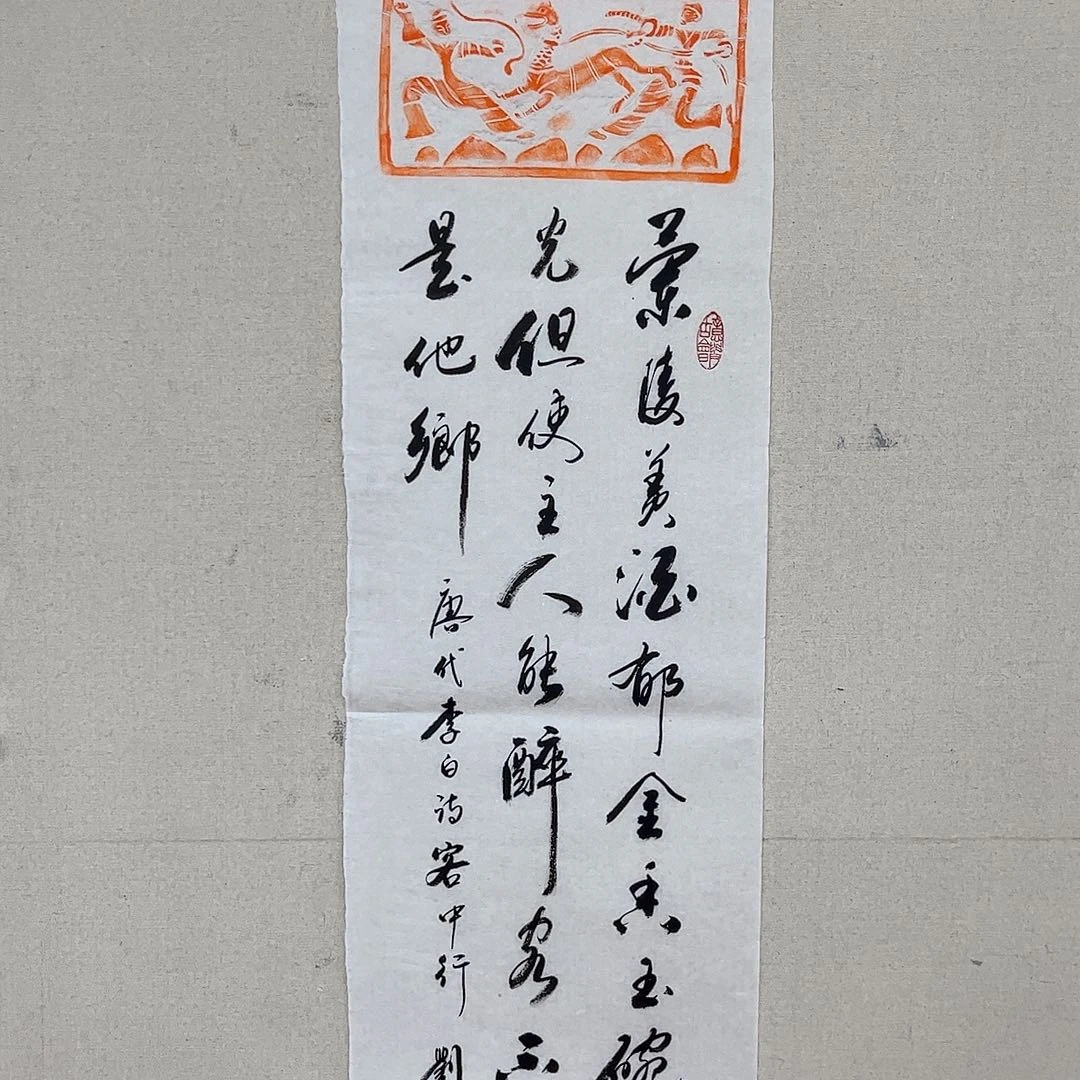 蘭陵美酒郁金香玉碗
光但使主人能醉客不
是他鄉
唐代李白詩客中行 劉